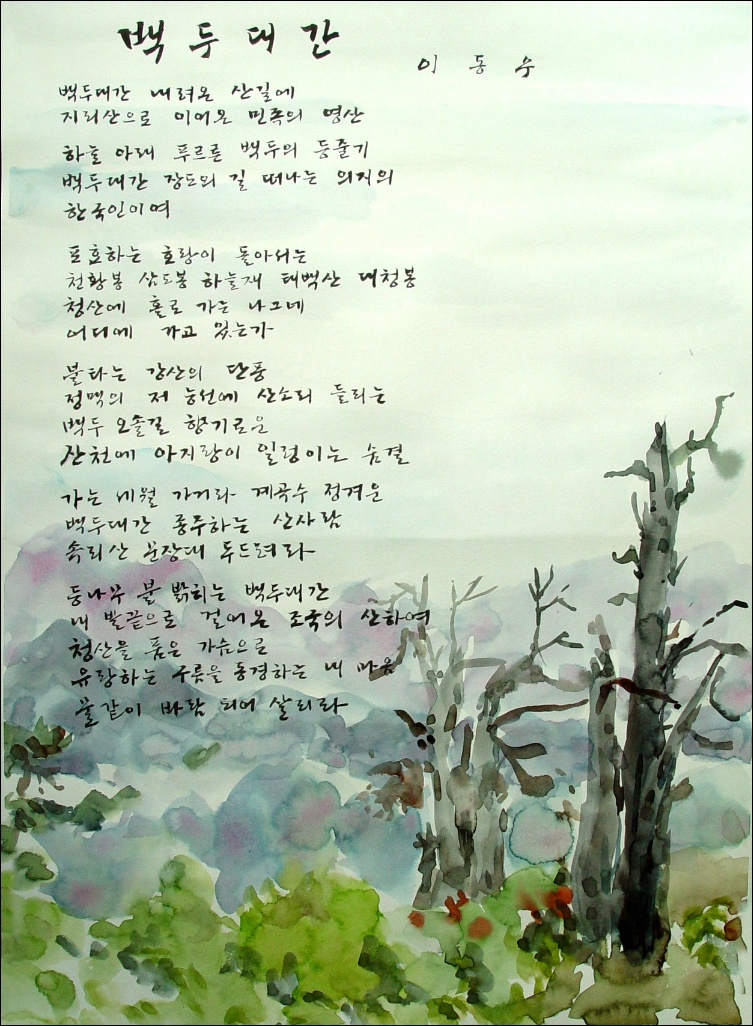 백두대간
이동수
백두대간 내려온 산길에
지리산으로 이어온 민족의 영산
하늘 아래 푸르른 백두의 등줄기
백두대간 장도의 길 떠나는 의지의
한국인이여
포효하는 호랑이 돌아서는
천황봉 삼도봉 하늘재 태백산 대청봉
청산에 홀로 가는 나그네
어디에 가고 있는가
불타는 강산의 단풍
정맥의 저 능선에 산소리 들리는
백두 오솔길 향기로운
산천에 아지랑이 일렁이는 숨결
가는 세월 가거라 계곡수 정겨운
백두대간 종주하는 산사람
속리산 문장대 두드려라
등나무 불 밝히는 백두대간
내 발끝으로 걸어온 조국의 산하여
청산을 품은 가슴으로
유랑하는 구름을 동경하는 내 마음
물같이 바람 되어 살리라